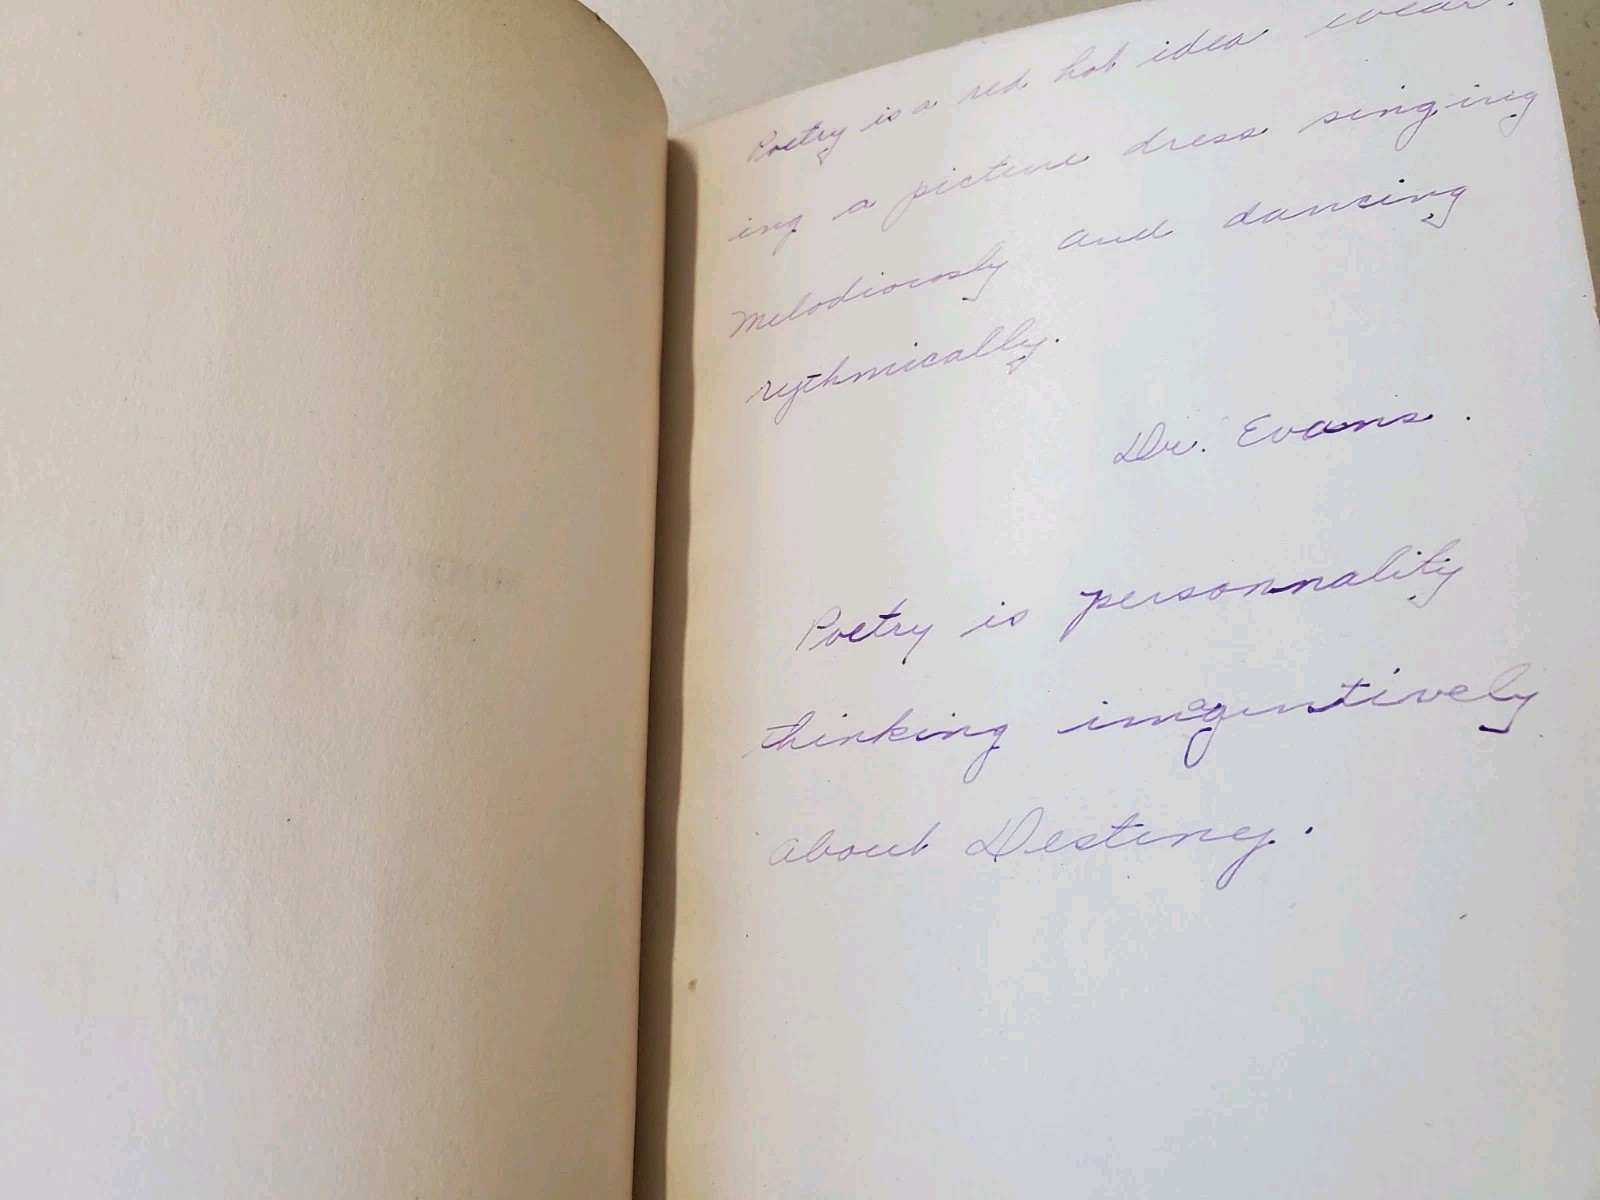 Poetry is a red hot idea wear-
ing a picture dress singing
melodiously and dancing
rythmically.
Dr. Evans.
Poetry is personnality
thinking imagintively
about Destiny.